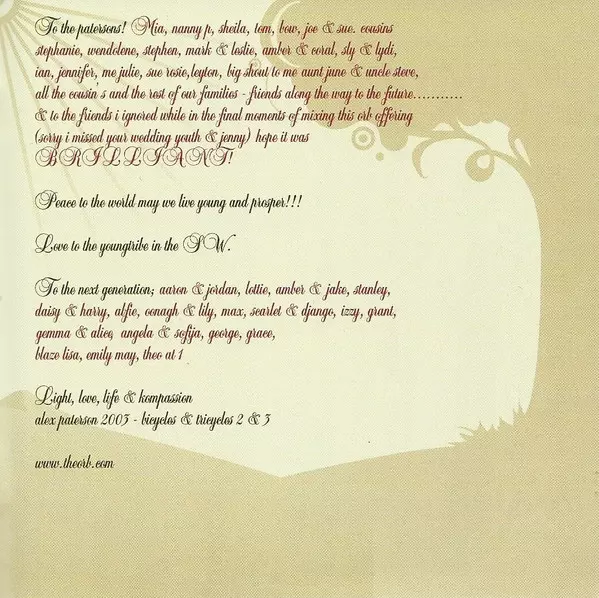 To the patersons! Mia, nanny p, sheila, tom, bow, joe & sue. cousins
stephanie, wendolene, stephen, mark & leslie, amber & coral, sly & lydi,
ian, jennifer, me julie, sue rosie,leyton, big shout to me aunt june & uncle steve,
all the cousin s and the rest of our families - friends along the way to the future...........
& to the friends i ignored while in the final moments of mixing this orb offering
(sorry i missed your wedding youth & jenny) hope it was
BRILLIANT!
Peace to the world may we live young and prosper!!!
Love to the youngtribe in the SW.
To the next generation; aaron & jordan, lottie, amber & jake, stanley,
daisy & harry, alfie, oonagh & lily, max, scarlet & django, izzy, grant,
gemma & alice, angela & sofija, george, grace,
blaze lisa, emily may, theo at 1
Light, love, life & kompassion
alex paterson 2005 - bicycles & tricycles 2 & 3
www.theorb.com